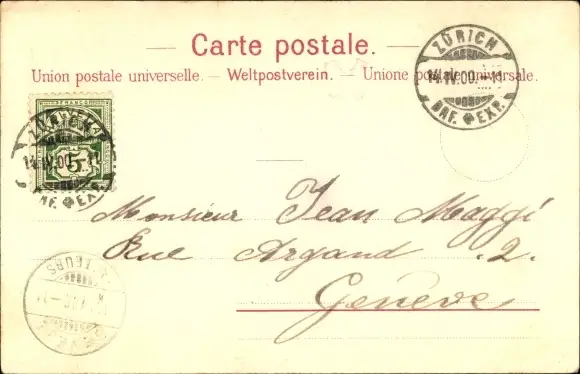 Carte postale.
Union postale universelle. — Weltpostverein. — Unione postale universale.
ZÜRICH
14.IV.00.-11
BRF. EXP.
FRANCO
ZÜRICH
14.IV.00.-11
5
BRF. EXP.
Monsieur Jean Maggi
Rue Argand .2.
Genève